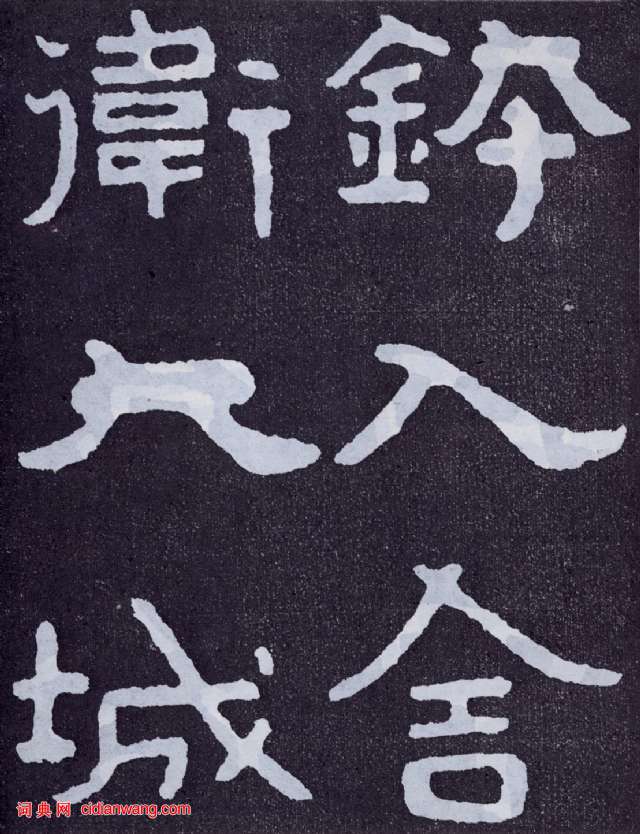 鉢入舍
衛大城
词典网 cidianwang.com